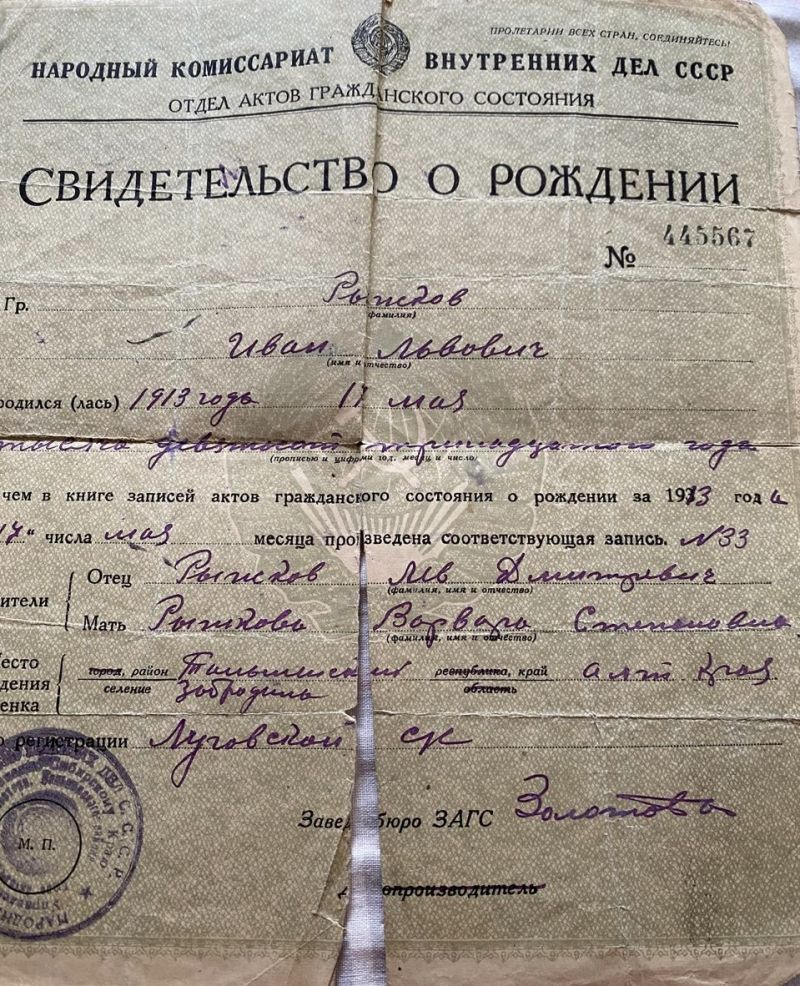 ПРОЛЕТАРИИ ВСЕХ СТРАН, СОЕДИНЯЙТЕСЬ!
НАРОДНЫЙ КОМИССАРИАТ ВНУТРЕННИХ ДЕЛ СССР
ОТДЕЛ АКТОВ ГРАЖДАНСКОГО СОСТОЯНИЯ
СВИДЕТЕЛЬСТВО О РОЖДЕНИИ
№ 445567
Гр. Рыжков
(фамилия)
Иван Львович
(имя и отчество)
родился (лась) 1913 года 17 мая
тысяча девятьсот тринадцатого года
(прописью и цифрами год, месяц и число)
чем в книге записей актов гражданского состояния о рождении за 1913 год а
17" числа мая месяца произведена соответствующая запись. N33
Отец Рыжков Лев Дмитревич
(фамилия, имя и отчество)
ители
Мать Рыжкова Варвара Степановна
(фамилия, имя и отчество)
место город, район республика, край алт края
дения селение область
енка
регистрации Луговской ск
Завед бюро ЗАГС Золотова
М. П.
делопроизводитель